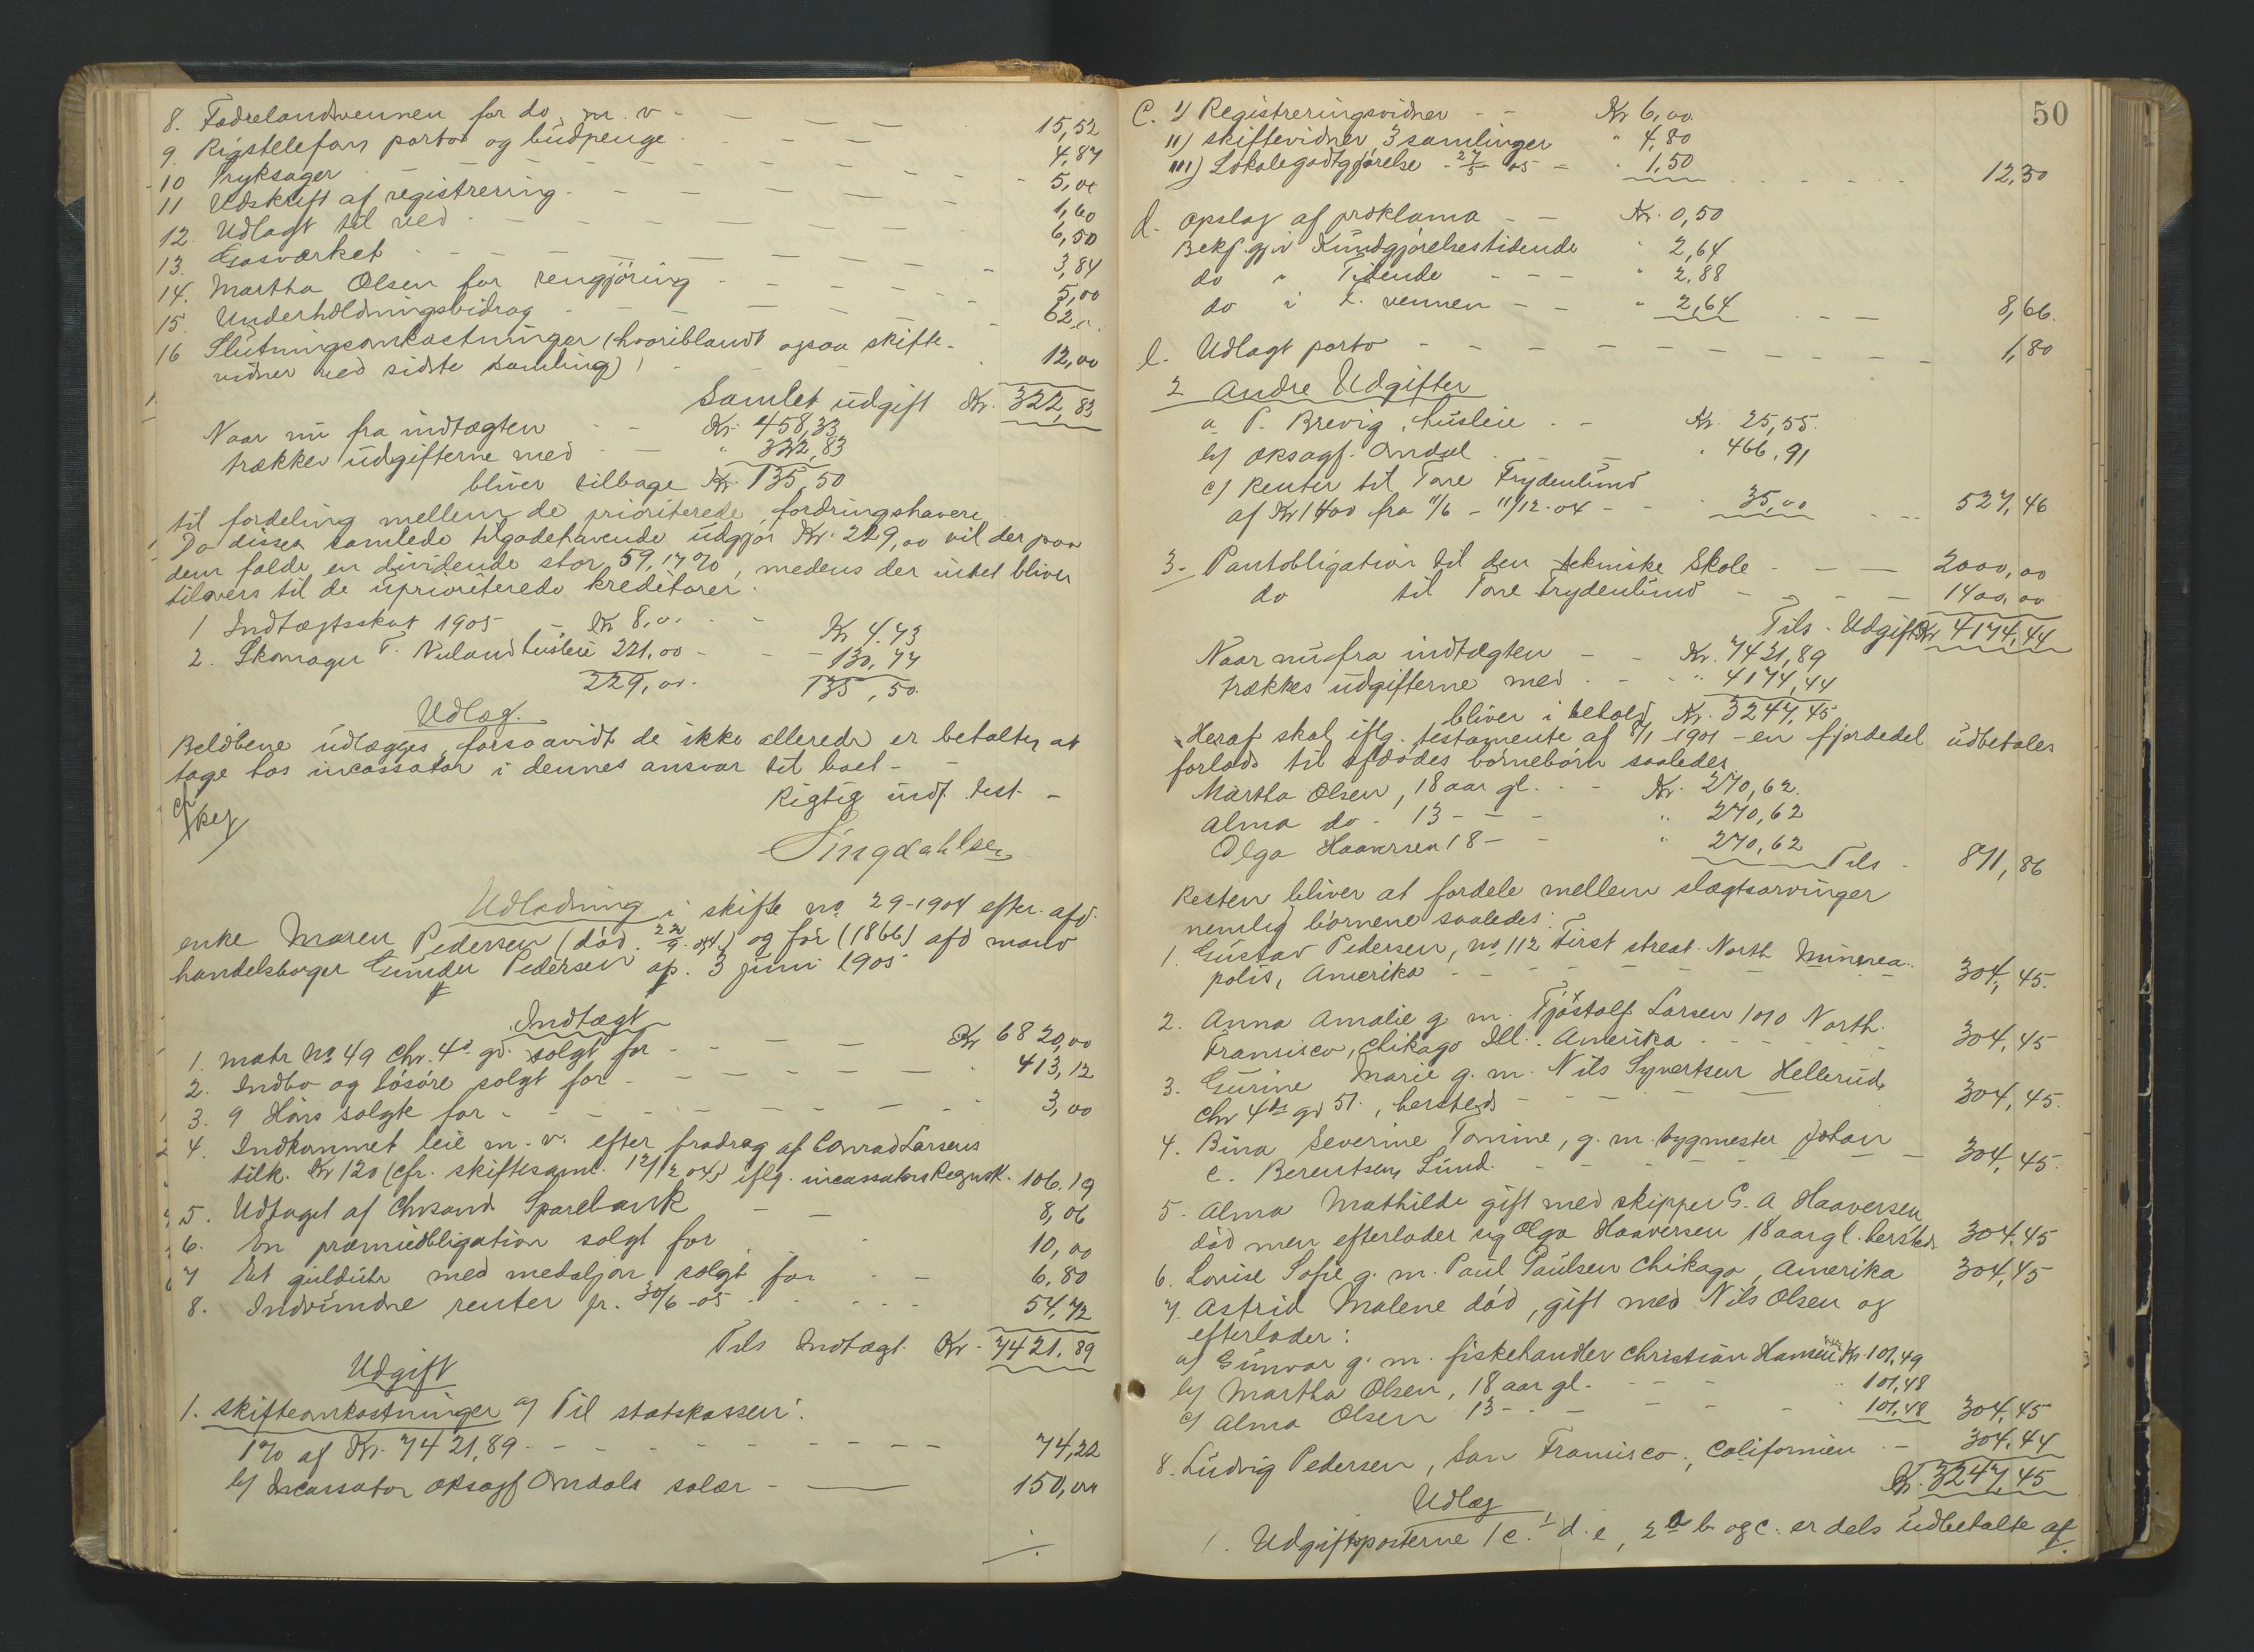 8. Fædrelandsvennen for do, m. v - 15,52
9. Rigstelefon portor og budpenge 4,87
10 Tryksager 5,00
11 Udskrift af registrering - 1,60
12. Udlagt til ved - 6,50
13. Gasværket - 3,84
14. Martha Olsen for rengjøring - 5,00
15. Underholdningsbidrag - 62,00
16 Slutningsomkostninger (hvoriblandt ogsaa skifte-
vidner ved sidste samling) 12,00
Samlet udgift Kr. 322,83
Naar nu fra indtægten - Kr. 458,33
trækkes udgifterne med - " 322,83
bliver tilbage Kr. 135,50
til fordeling mellem de prioriterede fordringshavere
Da disses samlede tilgodehavende udgjør Kr. 229,00 vil der paa
dem falde en dividende stor 59,17%, medens der intet bliver
tilovers til de uprioriterede kreditorer.
1 Indtægtsskat 1905 - Kr 8,00 - Kr 4.73
2. Skomager T. Nuland husleie 221.00 - 130,77
229,00. 135,50.
Udlæg.
Beløbene udlægges, forsaavidt de ikke allerede er betalte, at
tage hos incassator i dennes ansvar til boet -
Rigtig indf. test -
Singdahlsen
Udlodning i skifte no 29-1904 efter afd.
enke Maren Pedersen (død 22/9-04) og før (1866) afd mand
handelsborger Gunder Pedersen op. 3 juni 1905
Indtægt
1. matr No 49 Chr. 4d gd. solgt for - Kr 6820,00
2. Indbo og løsøre solgt for - 413,12
3. 9 Høns solgte for - 3,00
4. Indkommet leie m. v. efter fradrag af Conrad Larsens
tilk. Kr 120 (cfr. skiftesaml. 12/12 04) iflg. incassators Regnsk. 106.19
5. Udtaget af Chrsand Sparebank - 8,06
6. En præmieobligation solgt for 10,00
7 Et gulduhr med medaljon solgt for - 6,80
8. Indvundne renter pr. 30/6-05 - 54,72
Tils Indtægt Kr. 7421.89
Udgift
1. skifteomkostninger a) Til statskassen:
1% af Kr. 7421,89 - 74,22
b) Incassator oksagf Omdals salær - 150,00
50
C. I) Registreringsvidner - Kr 6,00
II) skiftevidner, 3 samlinger " 4,80
III) Lokalegodtgjørelse - 27/5 05 - " 1,50 12,30
d. opslag af proklama - Kr. 0,50
Bekj.gj. i Kundgjørelsestidende " 2,64
do " Tidende - " 2.88
do i F. vennen - " 2,64 8,66.
e. Udlagt porto - 1,80
2 Andre Udgifter
a P. Brevig, husleie - Kr. 25,55.
b) oksagf. Omdal - " 466.91
c) Renter til Tore Frydenlund
af Kr 1400 fra 11/6 - 11/12-04 - 35,00 - 527,46
3. Pantobligation til den tekniske Skole - 2000,00
do til Tore Frydenlund - 1400,00
Tils. Udgift Kr 4174.44
Naar nu fra indtægten - Kr. 7421,89
trækkes udgifterne med - " 4174,44
bliver i behold Kr. 3247,45
Heraf skal iflg. testamente af 8/1 1901 - en fjerdedel udbetales
forlods til afdødes børnebørn saaledes
Martha Olsen, 18 aar gl. - Kr. 270,62.
Alma do - 13 - " 270,62
Olga Haaversen 18 - " 270,62 Tils - 811,86
Resten bliver at fordele mellem slægtsarvinger
nemlig børnene saaledes:
1. Gustav Pedersen, no 112 First streat North Minnea-
polis, Amerika - 304,45.
2. Anna Amalie g. m. Tjøstolf Larsen 1010 North
Fransisco, Chikago Ill. Amerika - 304,45
3. Gurine Marie g. m. Nils Syvertsen Hellerud,
Chr 4de gd 51, hersteds - 304,45.
4. Bina Severine Tomine, g. m. bygmester Johan
C. Berentsen, Lund. - 304,45.
5. Alma Mathilde gift med skipper G. A Haaversen
død men efterlader sig Olga Haaversen 18 aar gl. hersteds 304.45
6. Lovise Sofie g. m. Paul Paulsen Chikago, Amerika 304,45
7. Astrid Malene død, gift med Nils Olsen og
efterlader:
a) Gunvor g. m. fiskehandler Christian Hansen Kr. 101,49
b) Martha Olsen, 18 aar gl. - 101,48
c) Alma Olsen 13 - 101,48 304,45
8. Ludvig Pedersen, San Fransisco, Californien - 304.44
Kr. 3247,45
Udlæg
1. Udgiftsposterne 1 c. d. e, 2 a b og c. er dels udbetalte af